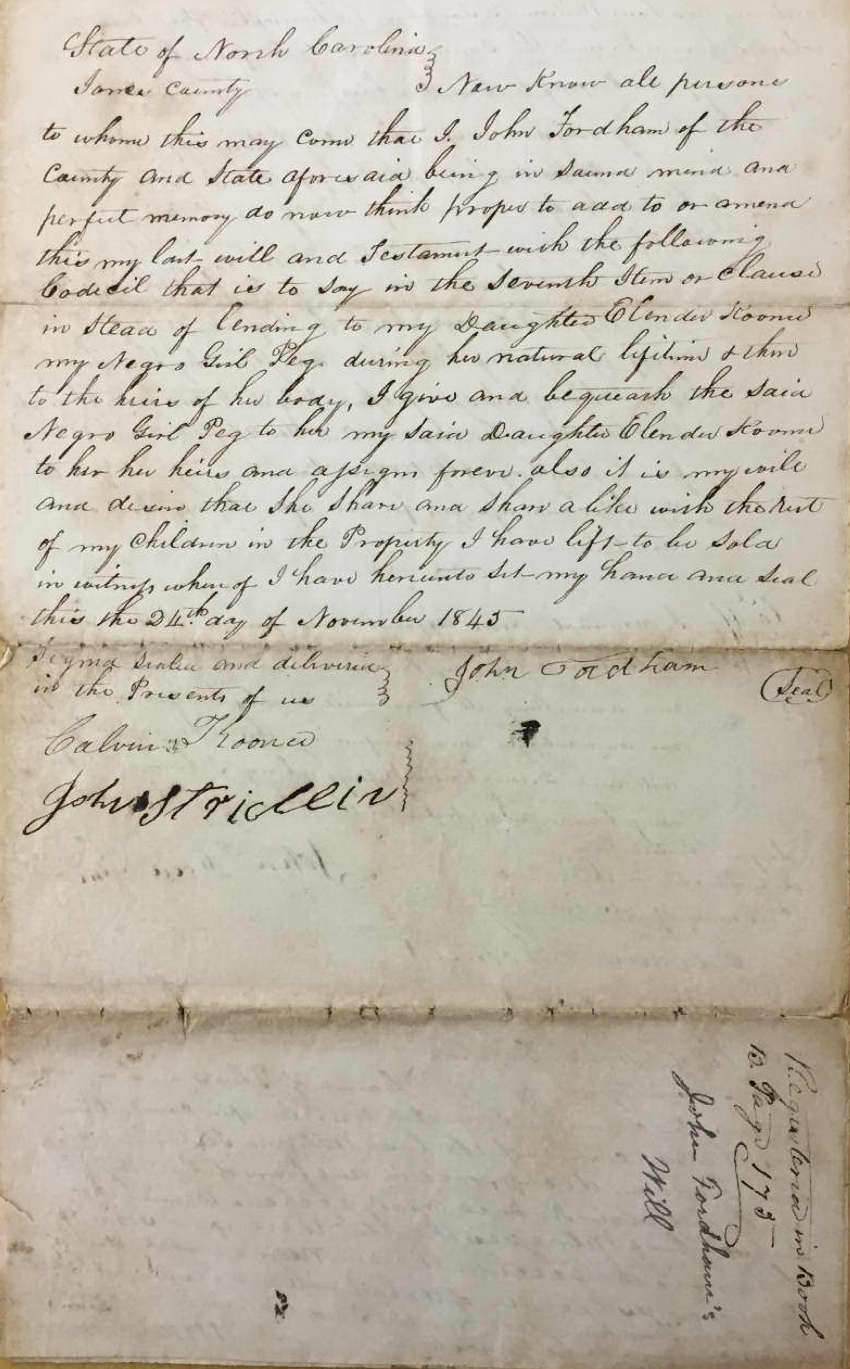 State of North Carolina
Jones County } Now Know all persons
to whome this may come that I, John Fordham of the
County and State aforesaid being in sound mind and
perfect memory do now think proper to add to or amend
this my last will and Testament with the following
Codecil that is to say in the seventh Item or Clause
in stead of lending to my Daughter Elender Koonce
my Negro Girl Peg during her natural lifetime & then
to the heirs of her body, I give and bequeath the said
Negro Girl Peg to her my said Daughter Elender Koonce
to her her heirs and assigns forever. also it is my will
and desire that she share and share a like with the rest
of my Children in the Property I have left to be sold
in witness whereof I have hereunto set my hand and seal
this the 24th day of November 1845
Signed sealed and delivered } John Fordham (Seal)
in the Presents of us
Calvin Koonce
John Stricklin
Registered in Book
B. Page 175
John Fordham's
Will